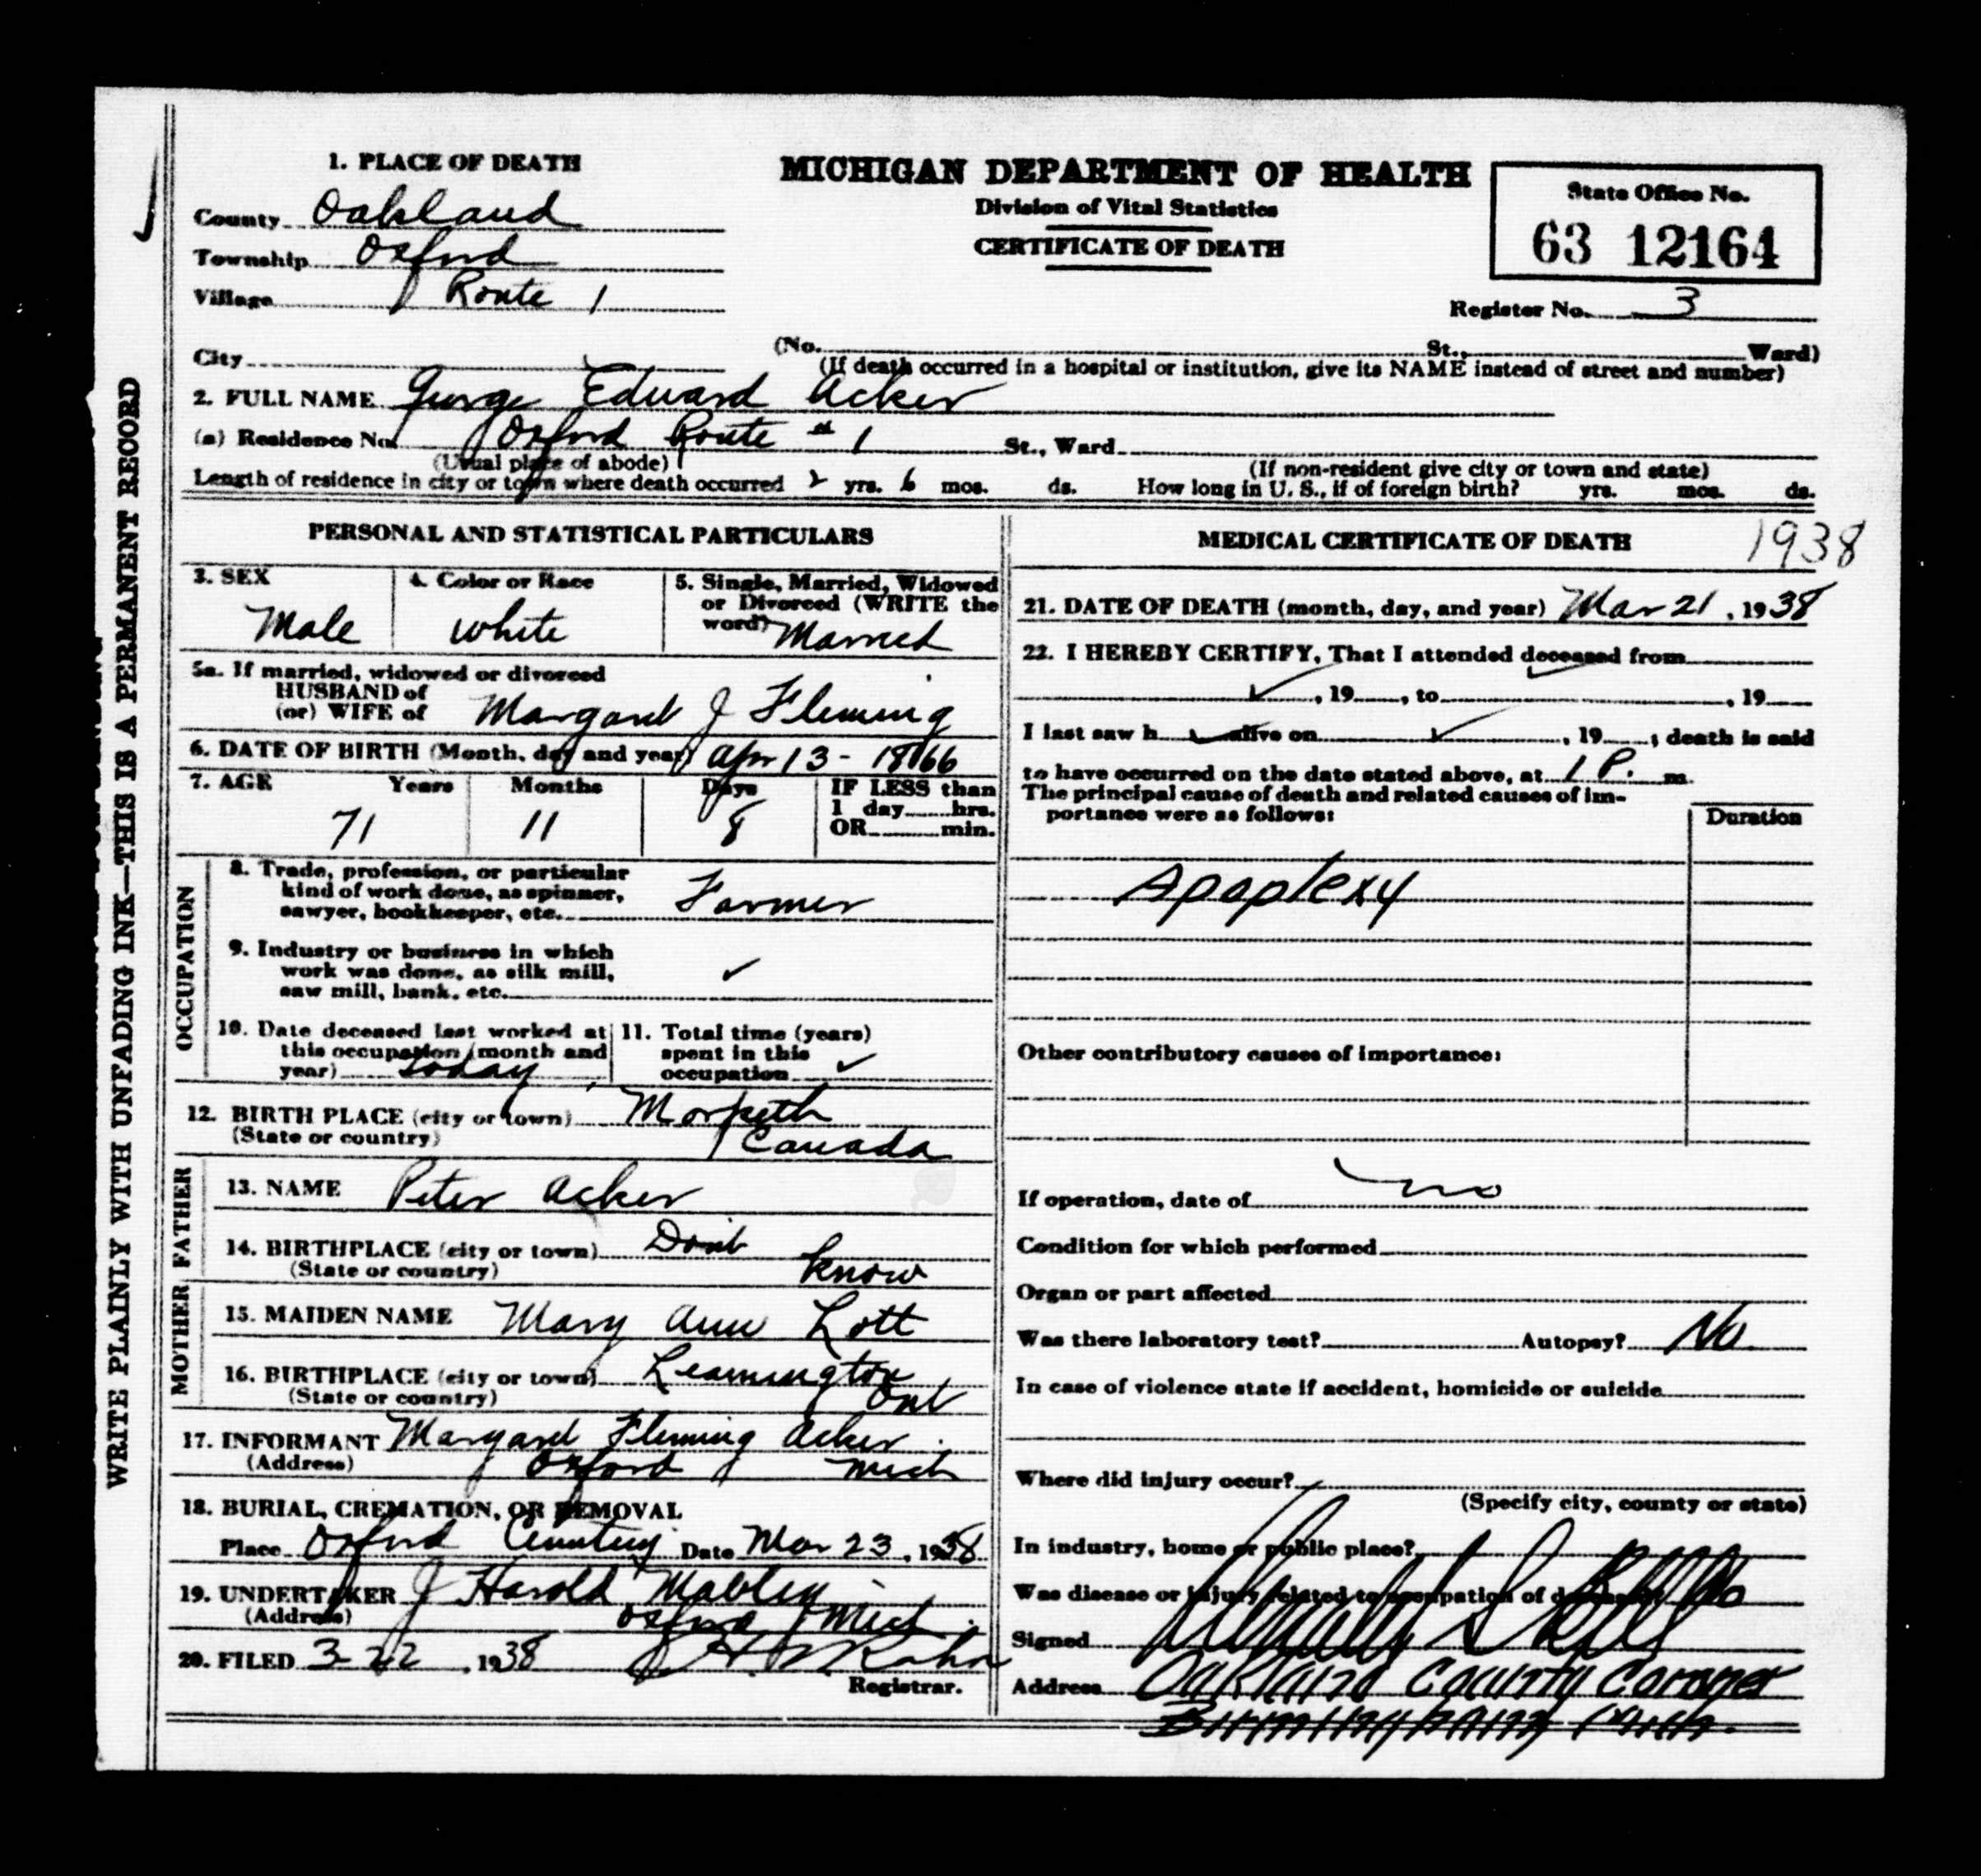 1. PLACE OF DEATH
County Oakland
Township Oxford
Village Route 1
City
MICHIGAN DEPARTMENT OF HEALTH
Division of Vital Statistics
CERTIFICATE OF DEATH
State Office No.
63 12164
Register No. 3
(No. St., Ward)
(If death occurred in a hospital or institution, give its NAME instead of street and number)
2. FULL NAME George Edward Acker
(a) Residence No. Oxford Route # 1 St., Ward
(Usual place of abode) (If non-resident give city or town and state)
Length of residence in city or town where death occurred 2 yrs. 6 mos. ds. How long in U. S., if of foreign birth? yrs. mos. ds.
PERSONAL AND STATISTICAL PARTICULARS
3. SEX
Male
4. Color or Race
White
5. Single, Married, Widowed
or Divorced (WRITE the
word) Married
5a. If married, widowed or divorced
HUSBAND of
(or) WIFE of Margaret J Fleming
6. DATE OF BIRTH (Month, day and year) Apr 13 - 1866
7. AGE Years Months Days IF LESS than
1 day hrs.
OR min.
71 11 8
OCCUPATION
8. Trade, profession, or particular
kind of work done, as spinner,
sawyer, bookkeeper, etc. Farmer
9. Industry or business in which
work was done, as silk mill,
saw mill, bank, etc. ✓
10. Date deceased last worked at
this occupation (month and
year) today
11. Total time (years)
spent in this
occupation ✓
12. BIRTH PLACE (city or town) Morpeth
(State or country) Canada
FATHER
13. NAME Peter Acker
14. BIRTHPLACE (city or town) Don't
(State or country) know
MOTHER
15. MAIDEN NAME Mary Ann Lott
16. BIRTHPLACE (city or town) Leamington
(State or country) Ont
17. INFORMANT Margaret Fleming Acker
(Address) Oxford Mich
18. BURIAL, CREMATION, OR REMOVAL
Place Oxford Cemetery Date Mar 23, 1938
19. UNDERTAKER J Harold Mabley
(Address) Oxford Mich.
20. FILED 3-22, 1938
Registrar.
MEDICAL CERTIFICATE OF DEATH 1938
21. DATE OF DEATH (month, day, and year) Mar 21, 1938
22. I HEREBY CERTIFY, That I attended deceased from
✓, 19, to, 19
I last saw h alive on ✓, 19; death is said
to have occurred on the date stated above, at 1 P. m.
The principal cause of death and related causes of im-
portance were as follows:
Duration
Apoplexy
Other contributory causes of importance:
If operation, date of no
Condition for which performed
Organ or part affected
Was there laboratory test? Autopsy? No
In case of violence state if accident, homicide or suicide
Where did injury occur?
(Specify city, county or state)
In industry, home or public place?
Was disease or injury related to occupation of deceased? No
Signed
Address Oakland County Coroner
Birmingham Mich.
WRITE PLAINLY WITH UNFADING INK—THIS IS A PERMANENT RECORD